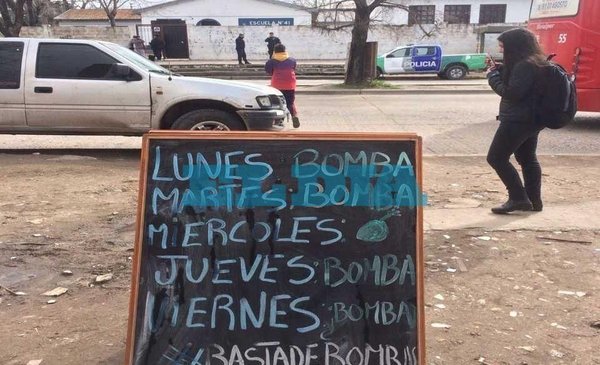 ESCUELA N°4
55
POLICIA
LUNES BOMBA
MARTES BOMBA
MIERCOLES
JUEVES BOMBA
VIERNES BOMBA
#BASTADEBOMBAS